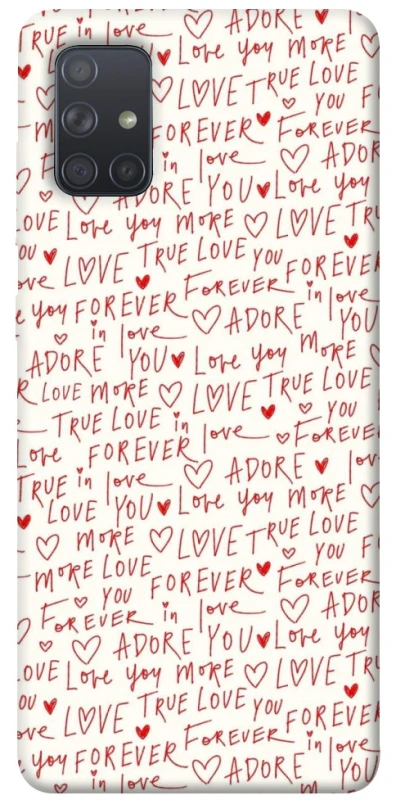 TRUE in love ADORE
YOU Love you MORE
LOVE TRUE LOVE
YOU F
MORE FOREVER FOREVER
F in love ADOR
ADORE YOU Love you
LOVE Love you MORE LOVE TRU
OU TRUE LOVE YOU
ove LOVE FOREVER FOREVER
e you FOREVER in love
in love ADORE YOU
ADORE YOU Love you MORE
R LOVE MORE LOVE TRUE LOVE
TRUE LOVE in love YOU
Love FOREVER FOREVE
TRUE in love ADORE lov
LOVE YOU Love you MORE
MORE LOVE TRUE LOVE
YOU F
MORE LOVE FOREVER FOREVER
YOU in love ADOR
FOREVER ADORE YOU Love you
LOVE Love you MORE LOVE TRU
OU TRUE LOVE YOU
ove LOVE FOREVER FOREVER
you FOREVER in love
in love ADORE YOU